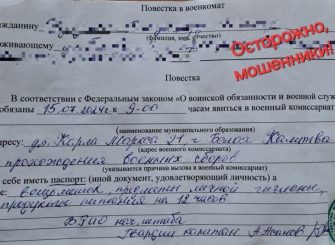 Повестка в военкомат
Гражданину
(фамилия, имя, отчество)
проживающему
Осторожно, мошенники!
Повестка
В соответствии с Федеральным законом «О воинской обязанности и военной служ
обязаны 15.07.2024г к 9-00 часам явиться в военный комиссариат
(наименование муниципального образования)
адресу: ул. Карла Маркса г. Белая Калитва
(адрес военного комиссариата)
прохождения военных сборов
(указывается причина вызова в военный комиссариат)
себе иметь паспорт: (иной документ, удостоверяющий личность) а
вещмешок, предметы личной гигиены,
продукты питания на 12 часов
ВРИО нач. штаба
Гвардии капитан